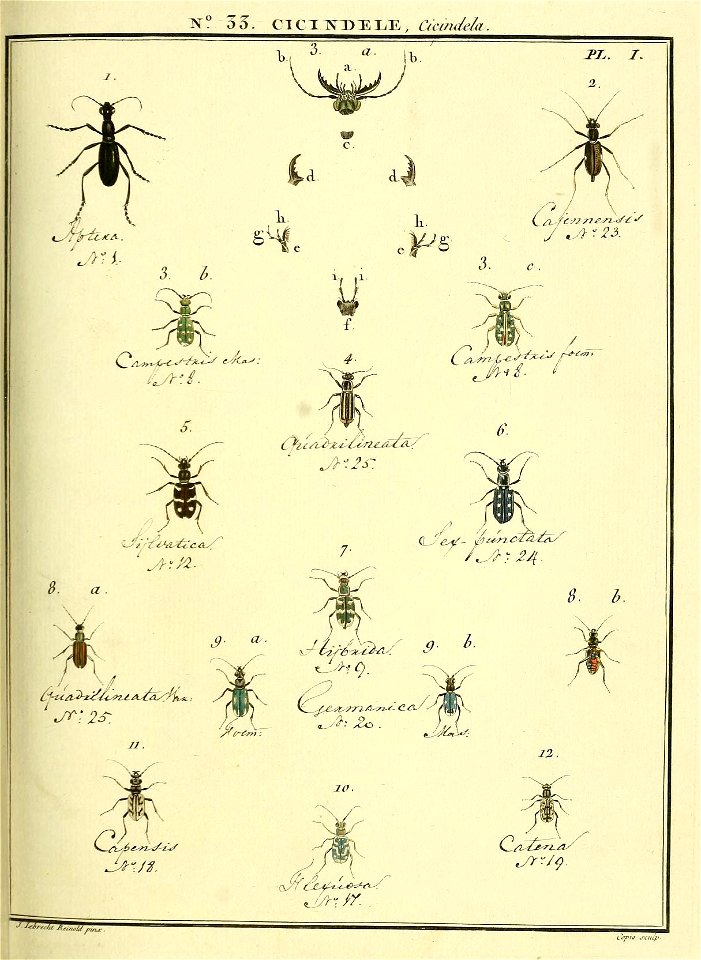 Nº. 33. CICINDELE, Cicindela.
PL. I.
3. a.
b. a. b.
c.
d. d.
h. h.
g. e e g.
i. i.
f.
1.
Aptera.
Nº. 1.
2.
Cajennensis
Nº. 23.
3. b.
Campestris Mas:
Nº. 8.
3. c.
Campestris foem:
Nº. 8.
4.
Quadrilineata.
Nº. 25.
5.
Silvatica.
Nº. 12.
6.
Sex-punctata
Nº. 24.
7.
Hybrida.
Nº. 9.
8. a.
Quadrilineata Var:
Nº. 25.
8. b.
9. a.
Foem:
9. b.
Germanica
Nº. 20.
Mas.
11.
Capensis
Nº. 18.
10.
Flexuosa.
Nº. 17.
12.
Catena
Nº. 19.
J. Lebrecht Reinold pinx.
Copia sculp.